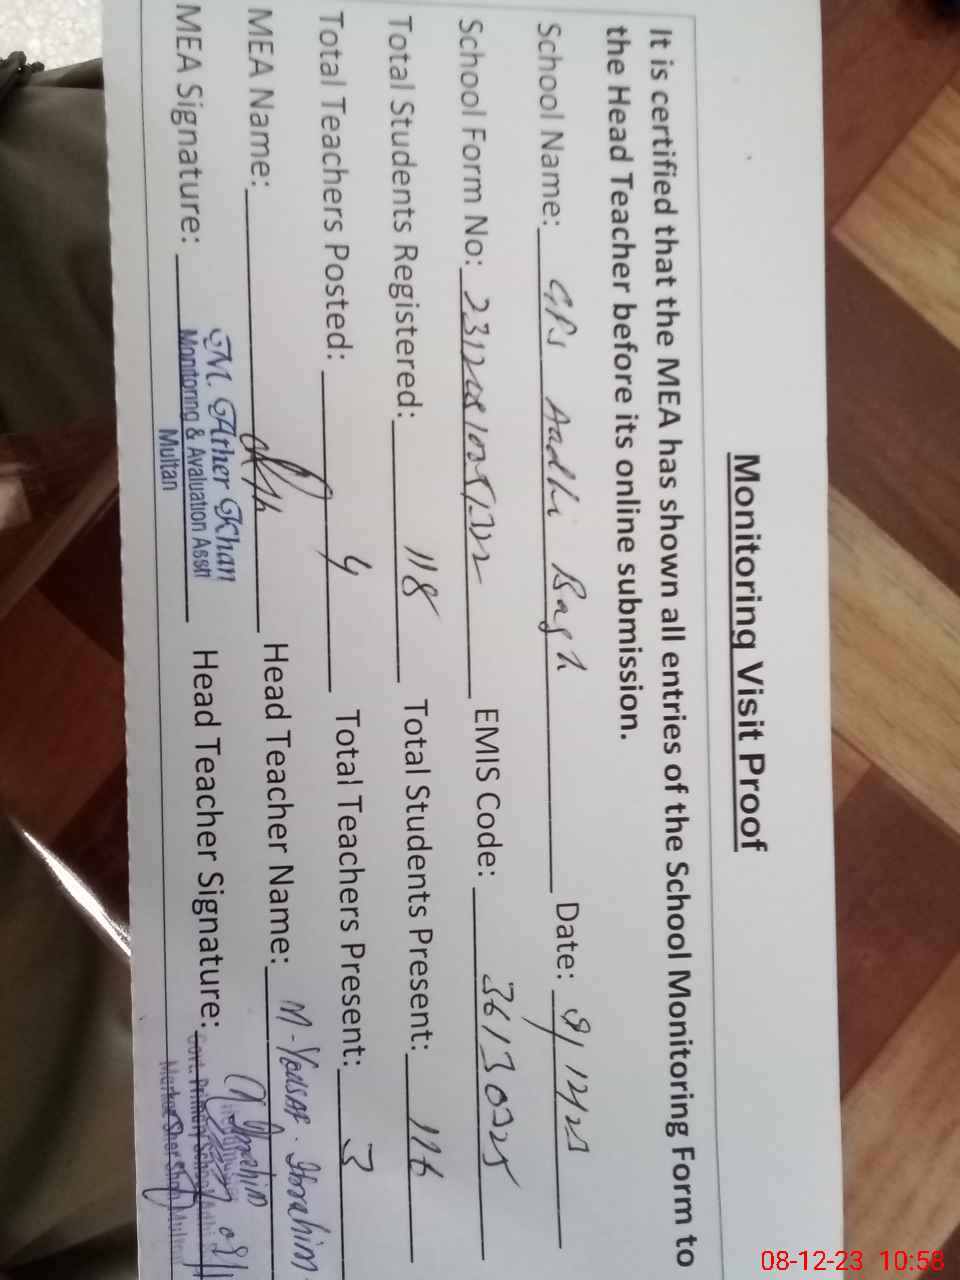 Monitoring Visit Proof
It is certified that the MEA has shown all entries of the School Monitoring Form to
the Head Teacher before its online submission.
School Name: GPS Aadhi Bagh Date:
School Form No: EMIS Code: 36130325
Total Students Registered: 118 Total Students Present: 116
Total Teachers Posted: 4 Total Teachers Present: 3
MEA Name: Head Teacher Name: M-Yousaf. Ibrahim
MEA Signature: M. Ather Khan Head Teacher Signature:
Monitoring & Avaluation Asstt Govt. Primary School
Multan
08-12-23 10:58